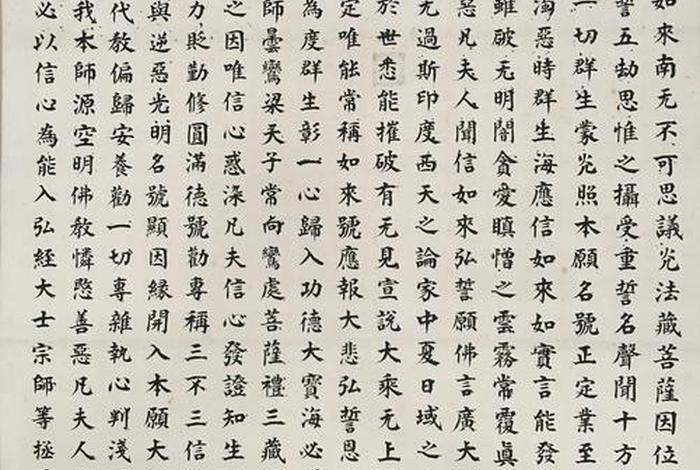 如來南无不可思議光法藏菩薩因位
誓五劫思惟之攝受重誓名聲聞十方
一切群生蒙光照本願名號正定業至
濁惡時群生海應信如來如實言能發
雖破无明闇貪愛瞋憎之雲霧常覆真
惡凡夫人聞信如來弘誓願佛言廣大
无過斯印度西天之論家中夏日域之
於世悉能摧破有无見宣說大乘无上
定唯能常稱如來號應報大悲弘誓恩
為度群生彰一心歸入功德大寶海必
師曇鸞梁天子常向鸞處菩薩禮三藏
之因唯信心惑染凡夫信心發證知生
力貶勤修圓滿德號勸專稱三不三信
與逆惡光明名號顯因緣開入本願大
代教偏歸安養勸一切專雜執心判淺
我本師源空明佛教憐愍善惡凡夫人
必以信心為能入弘経大士宗師等拯